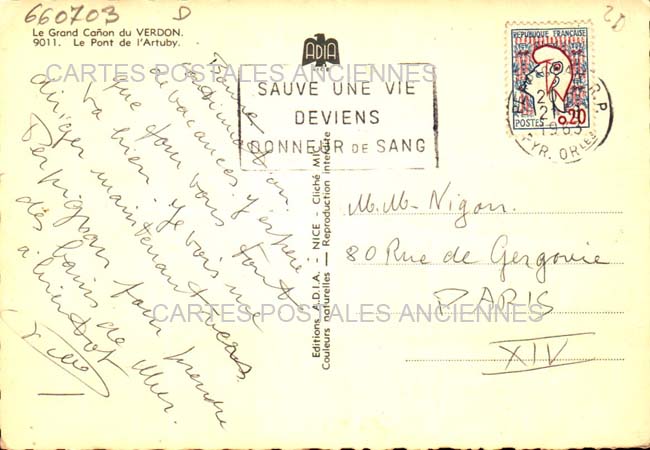 660703 D
2D
Le Grand Cañon du VERDON.
9011. Le Pont de l'Artuby.
ADIA
CARTES POSTALES ANCIENNES
SAUVE UNE VIE
DEVIENS
DONNEUR DE SANG
REPUBLIQUE FRANÇAISE
POSTES 0,20
20
1963
PYR. OR
Bonne
continuation
de vacances. J'espère
que pour vous tout
va bien. Je vais me
diriger maintenant vers
Perpignan pour prendre
des bains de mer.
à bientôt
Editions A.D.I.A. - NICE - Cliché
Couleurs naturelles - Reproduction interdite
M.M. Nigon.
80 Rue de Gergovie
PARIS
XIV
CARTES POSTALES ANCIENNES